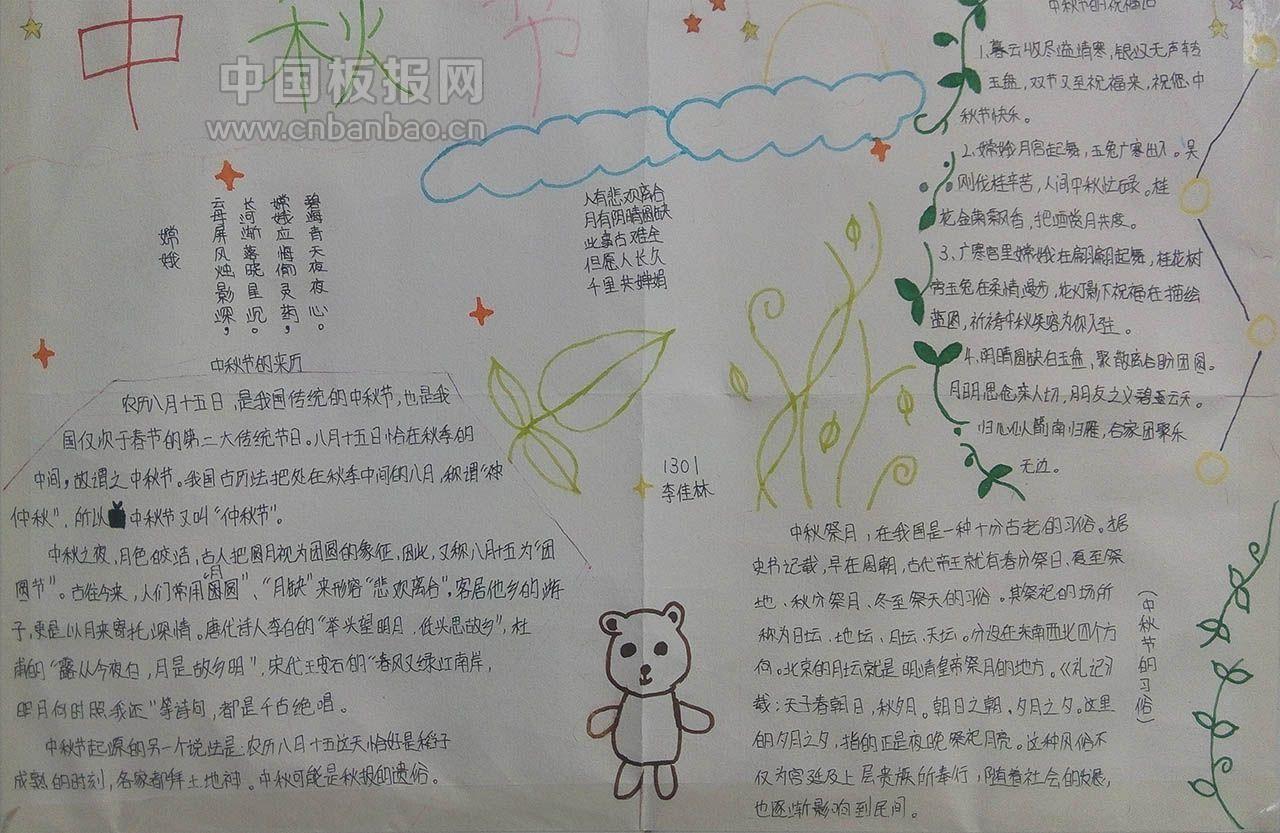 中秋节
中国板报网
www.cnbanbao.cn
嫦娥
云母屏风烛影深，
长河渐落晓星沉。
嫦娥应悔偷灵药，
碧海青天夜夜心。
人有悲欢离合
月有阴晴圆缺
此事古难全
但愿人长久
千里共婵娟
中秋节的来历
农历八月十五日，是我国传统的中秋节，也是我
国仅次于春节的第二大传统节日。八月十五日恰在秋季的
中间，故谓之中秋节。我国古历法把处在秋季中间的八月，称谓"仲
仲秋"，所以中秋节又叫"仲秋节"。
中秋之夜，月色皎洁，古人把圆月视为团圆的象征，因此，又称八月十五为"团
圆节"。古往今来，人们常用"月圆"、"月缺"来形容"悲欢离合"，客居他乡的游
子，更是以月来寄托深情。唐代诗人李白的"举头望明月，低头思故乡"，杜
甫的"露从今夜白，月是故乡明"，宋代王安石的"春风又绿江南岸，
明月何时照我还"等诗句，都是千古绝唱。
中秋节起源的另一个说法是：农历八月十五这天恰好是稻子
成熟的时刻，各家都拜土地神。中秋可能是秋报的遗俗。
1301
李佳林
中秋节的祝福语
1、暮云收尽溢清寒，银汉无声转
玉盘，双节又至祝福来，祝您中
秋节快乐。
2、嫦娥月宫起舞，玉兔广寒出入。吴
刚伐桂辛苦，人间中秋忙碌。桂
花金菊飘香，把酒赏月共度。
3、广寒宫里嫦娥在翩翩起舞，桂花树
旁玉兔在柔情漫步，花灯影下祝福在描绘
蓝图，祈祷中秋笑容为你入驻。
4、阴晴圆缺白玉盘，聚散离合盼团圆。
月明思念亲人切，朋友之义碧云天。
归心似箭南归雁，合家团聚乐
无边。
中秋祭月，在我国是一种十分古老的习俗。据
史书记载，早在周朝，古代帝王就有春分祭日、夏至祭
地、秋分祭月、冬至祭天的习俗。其祭祀的场所
称为日坛、地坛、月坛、天坛。分设在东南西北四个方
向。北京的月坛就是明清皇帝祭月的地方。《礼记》
载：天子春朝日，秋夕月。朝日之朝，夕月之夕。这里
的夕月之夕，指的正是夜晚祭祀月亮。这种风俗不
仅为宫廷及上层贵族所奉行，随着社会的发展，
也逐渐影响到民间。
（中秋节的习俗）